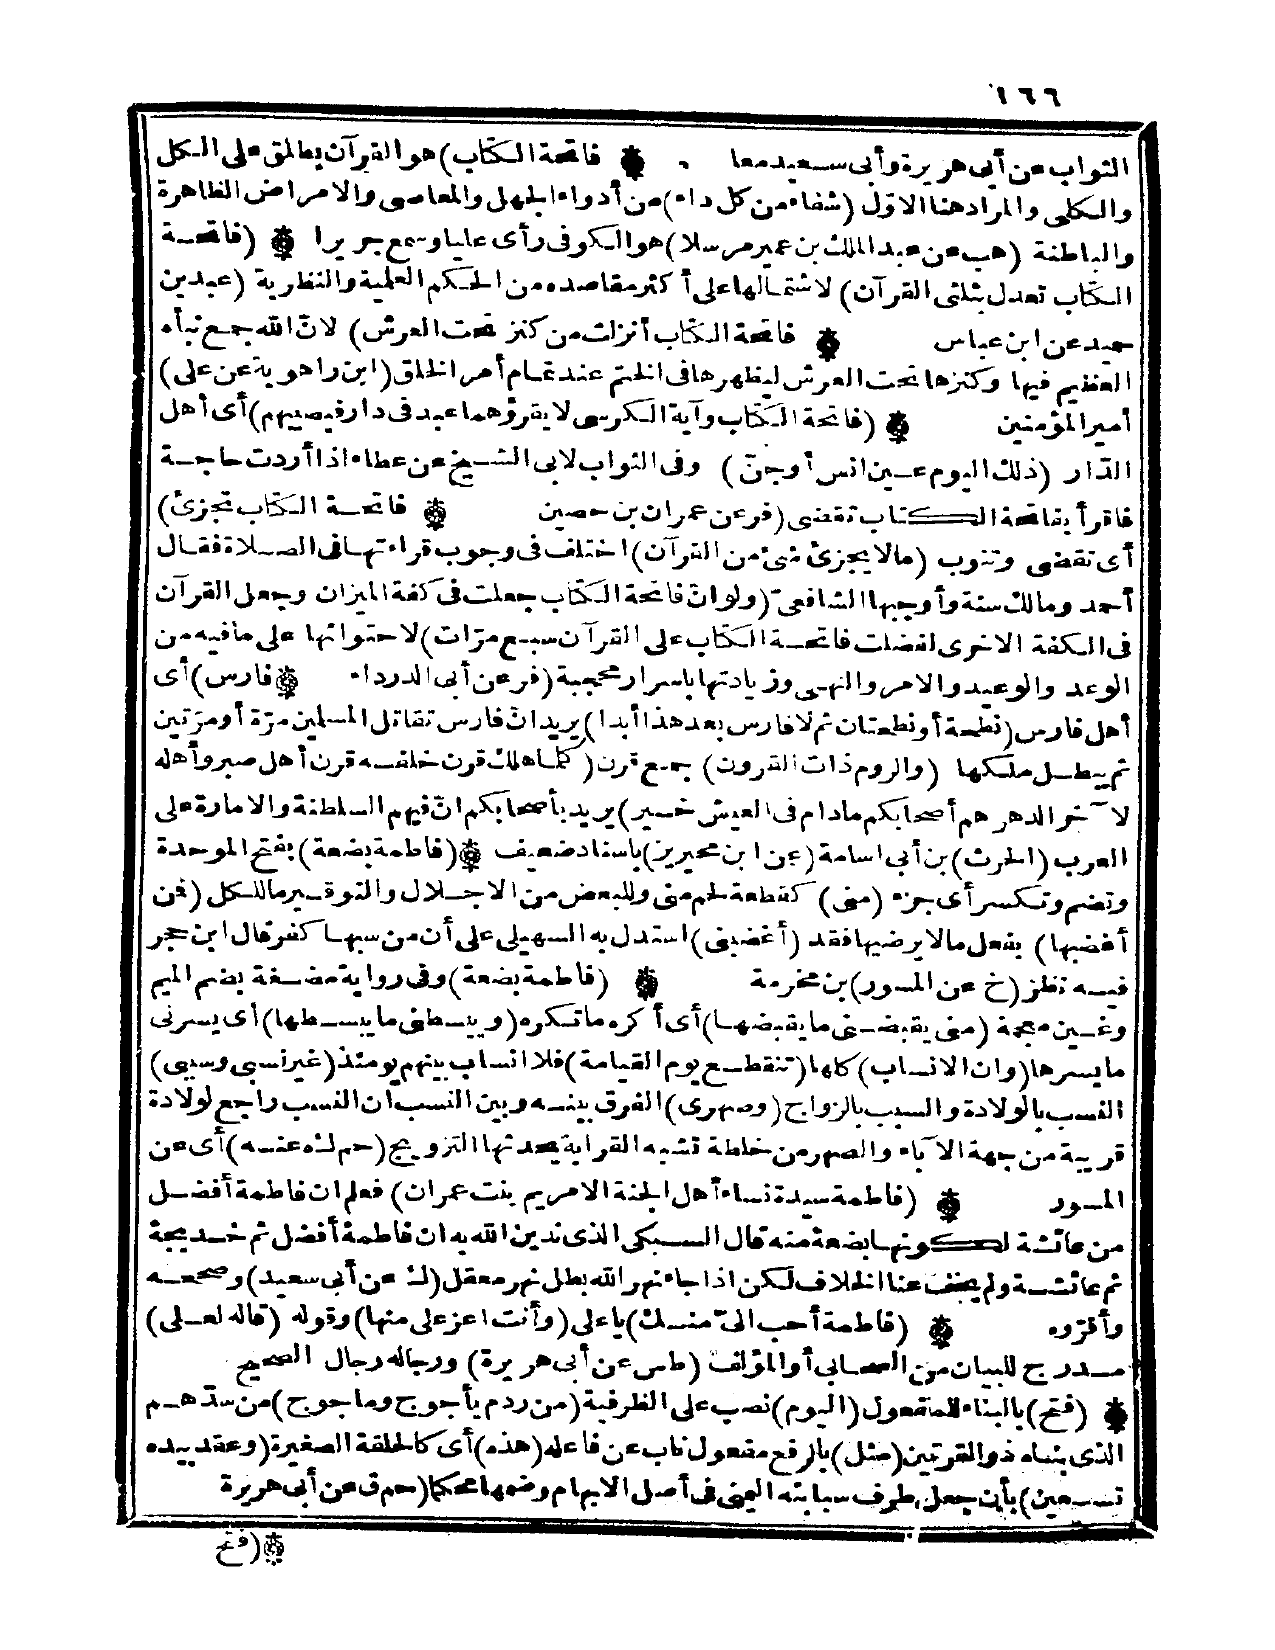 ١٦٦
الثواب عن أبي هريرة وأبي سعيد معا • ❁ فاتحة الكتاب) هو القرآن يطلق على الكل
والكلى والمراد هنا الاوّل (شفاء من كل داء) من أدواء الجهل والمعاصى والامراض الظاهرة
والباطنة (هب عن عبد الملك بن عمير مرسلا) هو الكوفى رأى عليا وسمع جريرا ❁ (فاتحة
الكتاب تعدل بثلثى القرآن) لاشتمالها على أكثر مقاصده من الحكم العلمية والنظرية (عبد بن
حميد عن ابن عباس ❁ فاتحة الكتاب أنزلت من كنز تحت العرش) لانّ الله جمع نبأه
العظيم فيها وكنزها تحت العرش ليظهرها فى الختم عند تمام أمر الخلق (ابن راهويه عن على)
أمير المؤمنين ❁ (فاتحة الكتاب وآية الكرسى لا يقرؤهما عبد فى دار فيصيبهم) أى أهل
الدّار (ذلك اليوم عين انس أوجنّ) وفى الثواب لابى الشيخ عن عطاء اذا أردت حاجة
فاقرأ بفاتحة الكتاب تقضى (فر عن عمران بن حصين ❁ فاتحة الكتاب تجزئ)
أى تقضى وتنوب (مالا يجزئ شئ من القرآن) اختلف فى وجوب قراءتها فى الصلاة فقال
أحمد ومالك سنة وأوجبها الشافعىّ (ولو انّ فاتحة الكتاب جعلت فى كفة الميزان وجعل القرآن
فى الكفة الاخرى لفضلت فاتحة الكتاب على القرآن سبع مرّات) لاحتوائها على مافيه من
الوعد والوعيد والامر والنهى وزيادتها باسرار محجبة (فر عن أبى الدرداء ❁ فارس) أى
أهل فارس (نطحة أونطحتان ثم لا فارس بعد هذا أبدا) يريد انّ فارس تقاتل المسلمين مرّة أومرّتين
ثم يبطل ملكها (والروم ذات القرون) جمع قرن (كلما هلك قرن خلفه قرن أهل صبر وأهله
لآخر الدهر هم أصحابكم مادام فى العيش خير) يريد بأصحابكم انّ فيهم السلطنة والامارة على
العرب (الحرث) بن أبى اسامة (عن ابن محيريز) باسناد ضعيف ❁ (فاطمة بضعة) بفتح الموحدة
وتضم وتكسر أى جزء (منى) كقطعة لحم منى وللبعض من الاجلال والتوقير ما للكل (فمن
أغضبها) بفعل مالا يرضيها فقد (أغضبنى) استدل به السهيلى على أن من سبها كفر قال ابن حجر
فيه نظر (خ عن المسور) بن مخرمة ❁ (فاطمة بضعة) وفى رواية مضغة بضم الميم
وغين معجمة (منى يقبضنى ما يقبضها) أى أكره ماتكره (ويبسطنى ما يبسطها) أى يسرنى
مايسرها (وان الانساب) كلها (تنقطع يوم القيامة) فلا انساب بينهم يومئذ (غير نسبى وسببى)
النسب بالولادة والسبب بالزواج (وصهرى) الفرق بينه وبين النسب ان النسب راجع لولادة
قريبة من جهة الآباء والصهر من خلطة تشبه القرابة يحدثها التزويج (حم ك عنه) أى عن
المسور ❁ (فاطمة سيدة نساء أهل الجنة الا مريم بنت عمران) فعلم ان فاطمة أفضل
من عائشة لكونها بضعة منه قال السبكى الذى ندين الله به ان فاطمة أفضل ثم خديجة
ثم عائشة ولم يخف عنا الخلاف لكن اذا جاء نهر الله بطل نهر معقل (ك عن أبى سعيد) وصححه
وأقرّوه ❁ (فاطمة أحب الىّ منك) ياعلى (وأنت اعز على منها) وقوله (قاله لعلى)
مدرج للبيان من الصحابى أو المؤلف (طس عن أبى هريرة) ورجاله رجال الصحيح
❁ (فتح) بالبناء للمفعول (اليوم) نصب على الظرفية (من ردم يأجوج وماجوج) من سدّهم
الذى بناه ذو القرنين (مثل) بالرفع مفعول ناب عن فاعله (هذه) أى كالحلقة الصغيرة (وعقد بيده
تسعين) بأن جعل طرف سبابته اليمنى فى أصل الابهام وضمها محكما (حم ق عن أبى هريرة
❁ (فتح